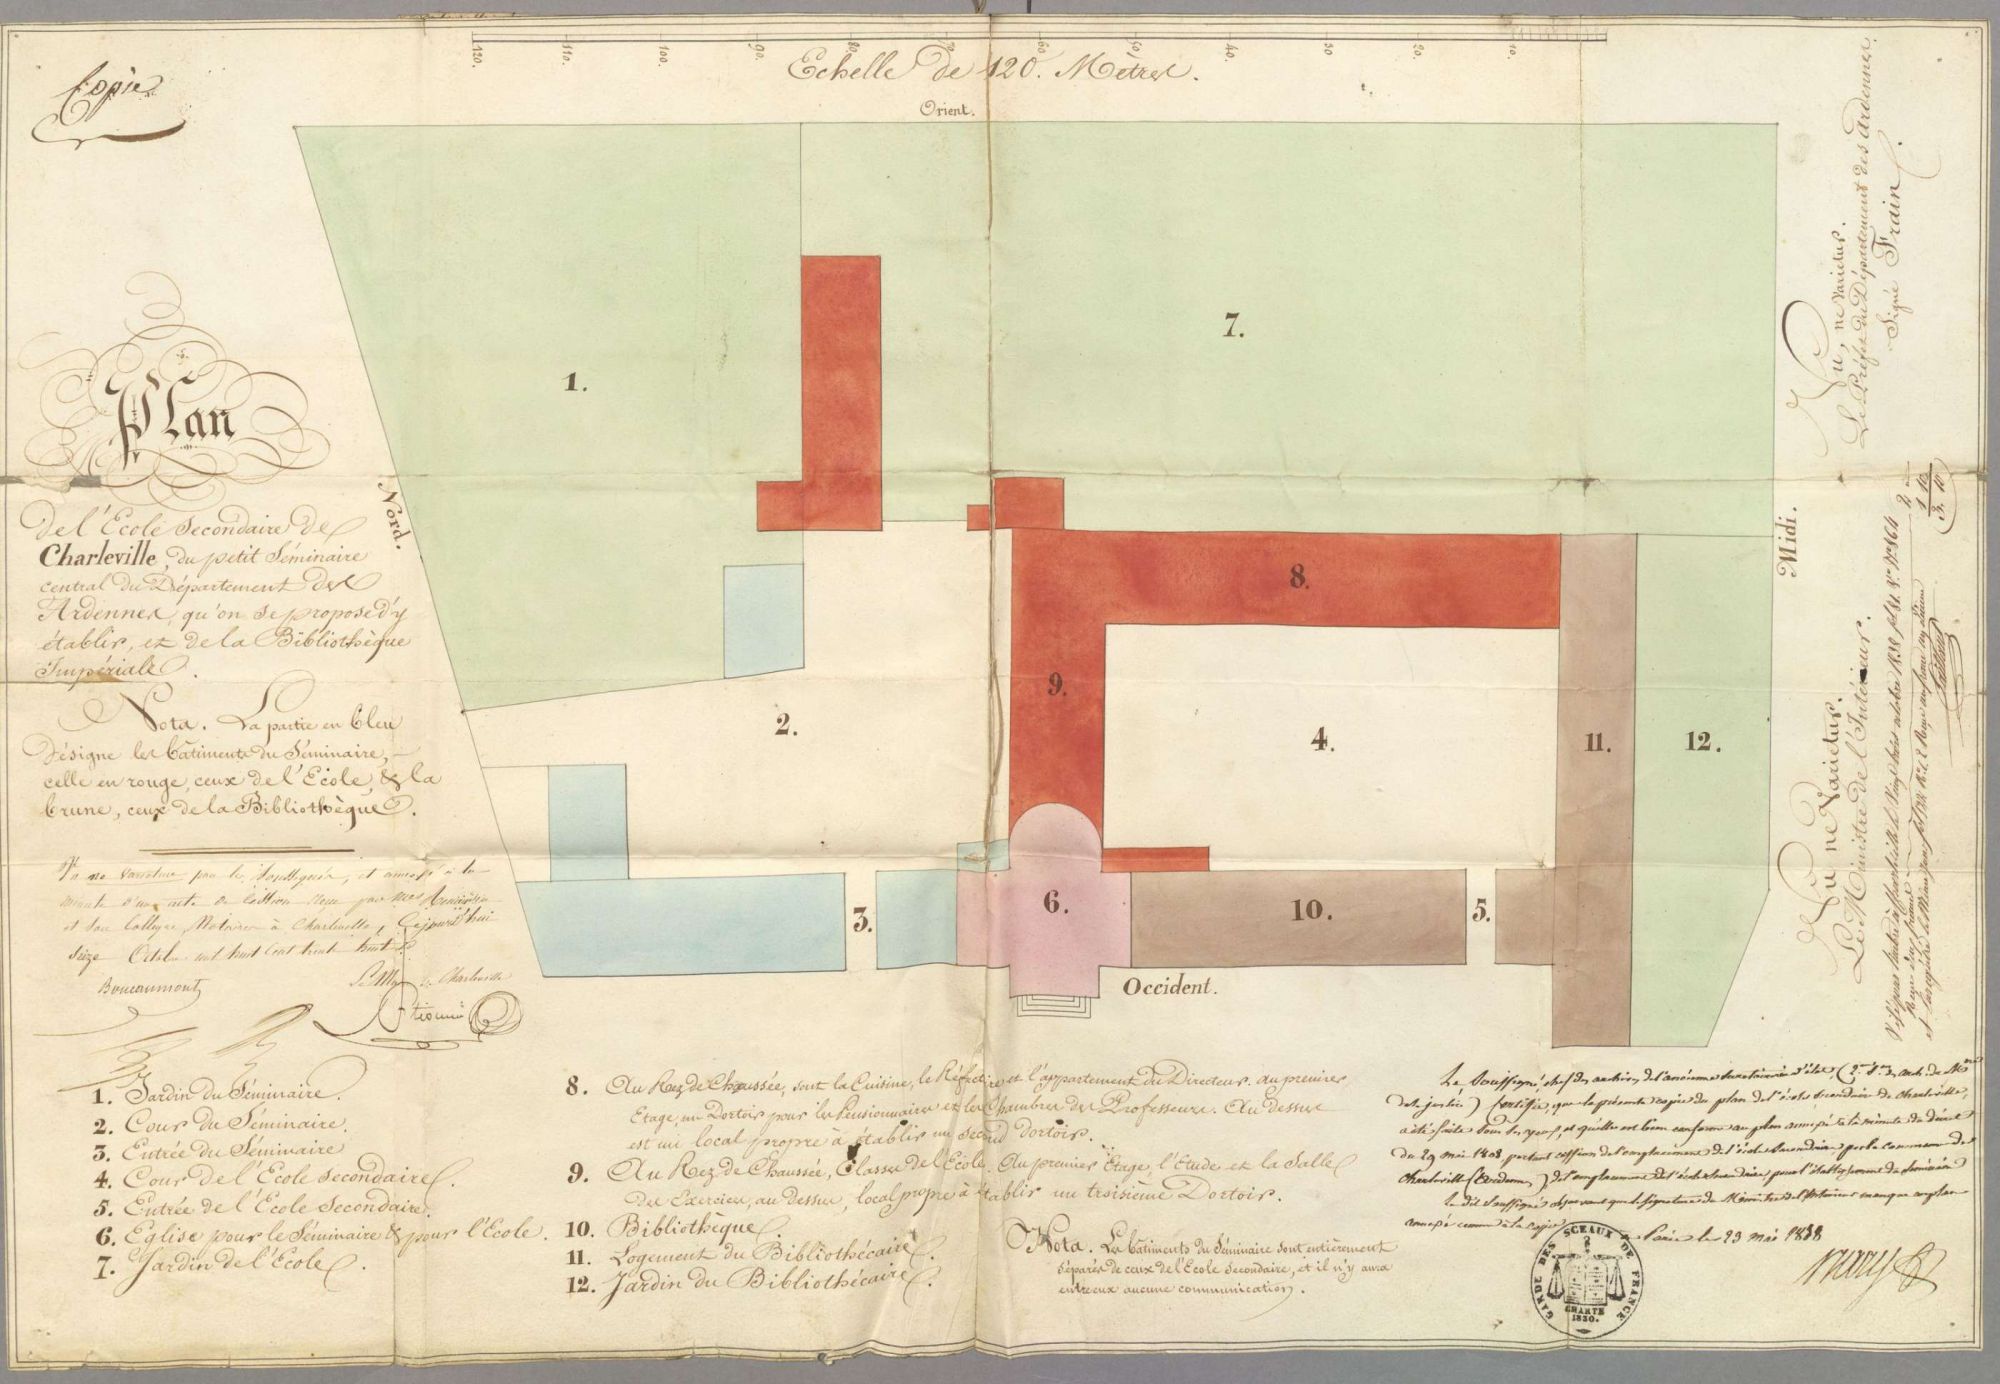 Copie
120. 110. 100. 90. 80. 70. 60. 50. 40. 30. 20. 10.
Echelle de 120. Mètres.
Orient.
Plan
de l'Ecole Secondaire de
Charleville, du petit Séminaire
central du Département des
Ardennes, qu'on se propose d'y
établir, et de la Bibliothèque
Impériale.
Nota. La partie en bleu
désigne les bâtiments du Séminaire,
celle en rouge, ceux de l'Ecole, & la
brune, ceux de la Bibliothèque.
ne varietur par les soussignés, et annexé à la
minute d'un acte de
et son Collègue, Notaires à Charleville, Cejourd'hui
seize Octobre mil huit Cent trente huit
Boucaumont
de Charleville
Nord.
Midi.
Occident.
1.
2.
3.
4.
5.
6.
7.
8.
9.
10.
11.
12.
1. Jardin du Séminaire.
2. Cour du Séminaire.
3. Entrée du Séminaire
4. Cour de l'Ecole secondaire.
5. Entrée de l'Ecole secondaire.
6. Eglise pour le Séminaire & pour l'Ecole.
7. Jardin de l'Ecole.
8. Au Rez de Chaussée, sont la Cuisine, le Réfectoire et l'appartement du Directeur. au premier
Etage, un Dortoir pour les Pensionnaires et les Chambres des Professeurs. Au dessus
est un local propre à établir un second Dortoir.
9. Au Rez de Chaussée, Classes de l'Ecole. Au premier Etage, l'Etude et la Salle
des Exercices, au dessus, local propre à établir un troisième Dortoir.
10. Bibliothèque.
11. Logement du Bibliothécaire.
12. Jardin du Bibliothécaire.
Nota. Les bâtiments du Séminaire sont entièrement
séparés de ceux de l'Ecole secondaire, et il n'y aura
entreux aucune communication.
Vu, ne varietur.
Le Préfet du Département des Ardennes.
Signé Frain
Vu ne Varietur.
Le Ministre de l'Intérieur.
Le Soussigné, chef des archives de l'ancienne secrétairerie d'état,
de la justice) Certifie, que la présente copie du plan de l'école secondaire de Charleville,
a été faite sous ses yeux, et qu'elle est bien conforme au plan annexé à la minute du décret
du 29 mai 1808 portant cession de l'emplacement de l'école secondaire par la commune de
Charleville (Ardennes) de l'emplacement de l'école secondaire pour l'établissement du Séminaire
le dit soussigné observant que la signature du Ministre de l'Intérieur manque au plan
annexé comme à la copie
Paris le 23 mai 1838
GARDE DES SCEAUX DE FRANCE
CHARTE
1830.